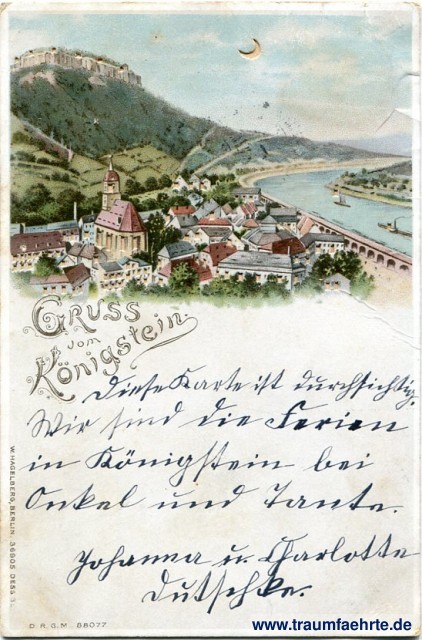 GRUSS
vom
Königstein.
Diese Karte ist durchsichtig.
Wir sind die Ferien
in Königstein bei
Onkel und Tante.
Johanna u. Charlotte
Dutschke.
W. HAGELBERG, BERLIN. 36905 DESS.
D. R. G. M. 88077
www.traumfaehrte.de